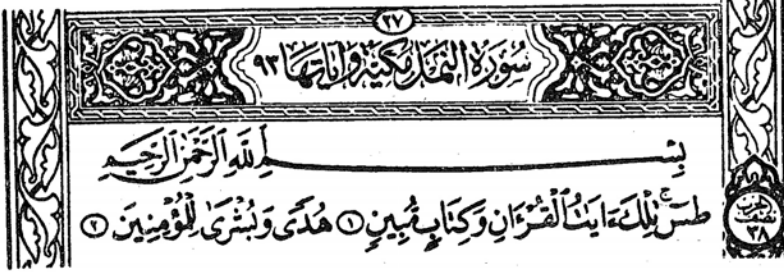 ٢٧
سُورَةُ النَّمْلِ مَكِّيَّة وَآيَاتُهَا ٩٣
بِسْمِ ٱللَّهِ ٱلرَّحْمَٰنِ ٱلرَّحِيمِ
طسٓۚ تِلْكَ ءَايَٰتُ ٱلْقُرْءَانِ وَكِتَابٍ مُّبِينٍ ۝١ هُدًى وَبُشْرَىٰ لِلْمُؤْمِنِينَ ۝٢
الحزب
٣٨